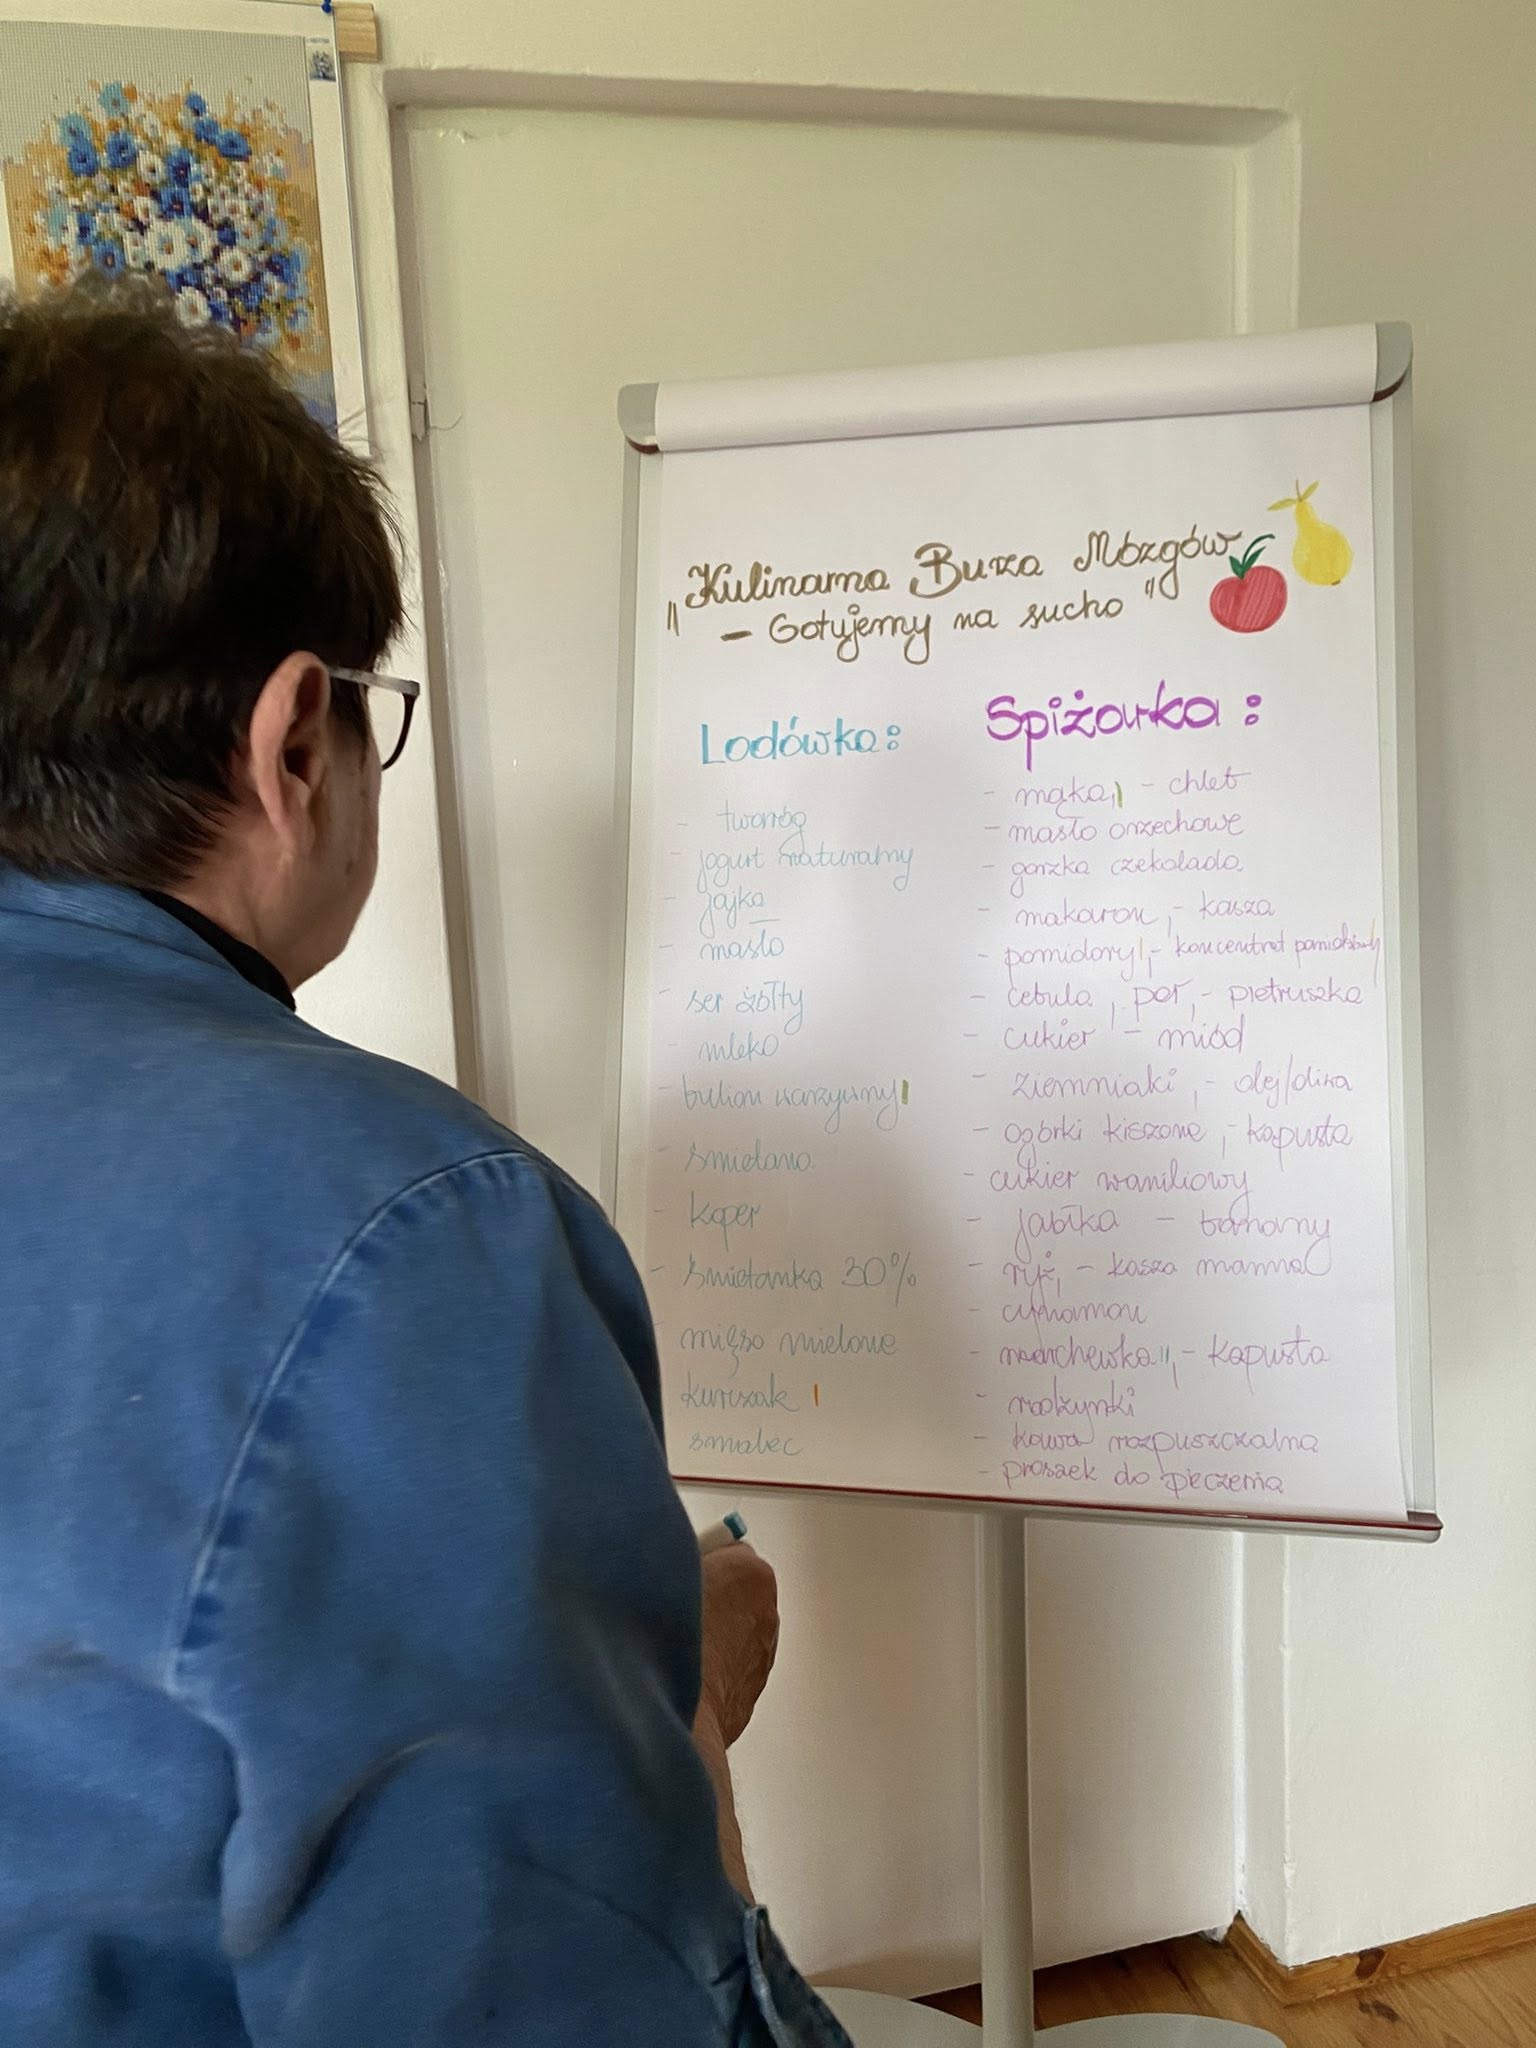 „Kulinarna Burza Mózgów
– Gotujemy na sucho"
Lodówka:
- twaróg
- jogurt naturalny
- jajka
- masło
- ser żółty
- mleko
- bulion warzywny
- śmietana
- koper
- śmietanka 30%
- mięso mielone
kurczak
smalec
Spiżarka:
- mąka, - chleb
- masło orzechowe
- gorzka czekolada
- makaron, - kasza
- pomidory, - koncentrat pomidorowy
- cebula, por, - pietruszka
- cukier - miód
- ziemniaki, - olej/oliwa
- ogórki kiszone, - kapusta
- cukier waniliowy
- jabłka - banany
- ryż, - kasza manna
- cynamon
- marchewka, - kapusta
- rodzynki
- kawa rozpuszczalna
- proszek do pieczenia